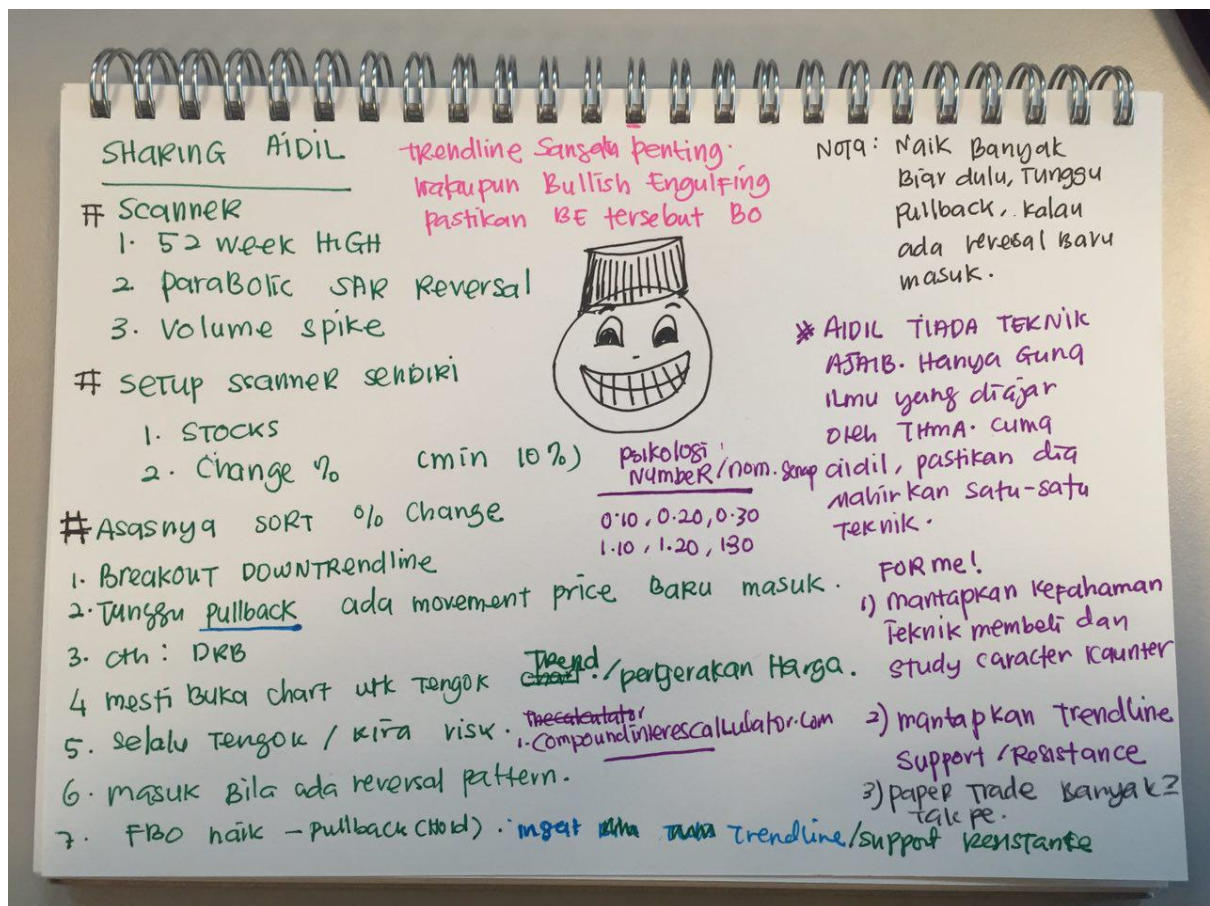 SHARING AIDIL
# Scanner
1. 52 week HIGH
2. paraBolic SAR Reversal
3. Volume spike
# Setup scanner sendiri
1. STOCKS
2. Change % (min 10%)
# Asasnya SORT % Change
1. Breakout DOWNTRendline
2. Tunggu pullback ada movement price Baru masuk.
3. cth: DRB
4 mesti Buka chart utk Tengok Trend/pergerakan Harga.
5. Selalu Tengok / kira risk.
6. masuk Bila ada reversal pattern.
7. FBO naik - pullback (Hold). ingat Trendline/support Resistante
Trendline Sangatu penting.
walaupun Bullish Engulfing
pastikan BE tersebut BO
Psikologi
NumbeR/nom. genap
0.10, 0.20, 0.30
1.10, 1.20, 130
thecalculator
1. Compoundinterescallulator.com
NOTA: Naik Banyak
Biar dulu, Tunggu
pullback, kalau
ada reversal Baru
masuk.
* AIDIL TIADA TEKNIK
AJAIB. Hanya Guna
ilmu yang diajar
oleh THMA. cuma
aidil, pastikan dia
Mahirkan satu-satu
Teknik.
FOR me!
1) mantapkan kefahaman
Teknik membeli dan
study caracter kaunter
2) mantapkan Trendline
Support / Resistance
3) paper Trade Banyak2
Tak pe.